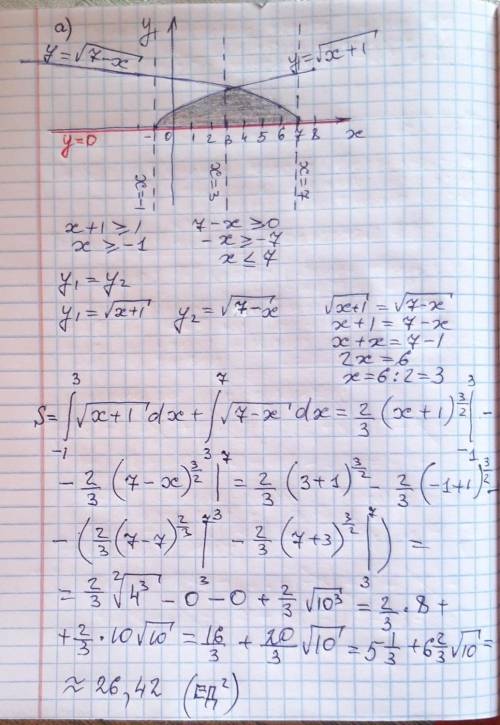 а)
y
y=√(7-x) y=√(x+1)
y=0 -1 0 1 2 3 4 5 6 7 8 x
x=-1 x=3 x=7
x+1≥1 7-x≥0
x≥-1 -x≥-7
x≤7
y₁=y₂
y₁=√(x+1) y₂=√(7-x) √(x+1)=√(7-x)
x+1=7-x
x+x=7-1
2x=6
x=6:2=3
S=∫₋₁³√(x+1)dx+∫₃⁷√(7-x)dx=2/3(x+1)^(3/2)|₋₁³-
-2/3(7-x)^(3/2)|₃⁷=2/3(3+1)^(3/2)-2/3(-1+1)^(3/2)-
-(2/3(7-7)^(2/3)|₃⁷-2/3(7+3)^(3/2)|₃⁷)=
=2/3 ²√(4³)-0-0+2/3√(10³)=2/3·8+
+2/3·10√10=16/3+20/3√10=5 1/3+6 2/3√10=
≈26,42 (ед²)